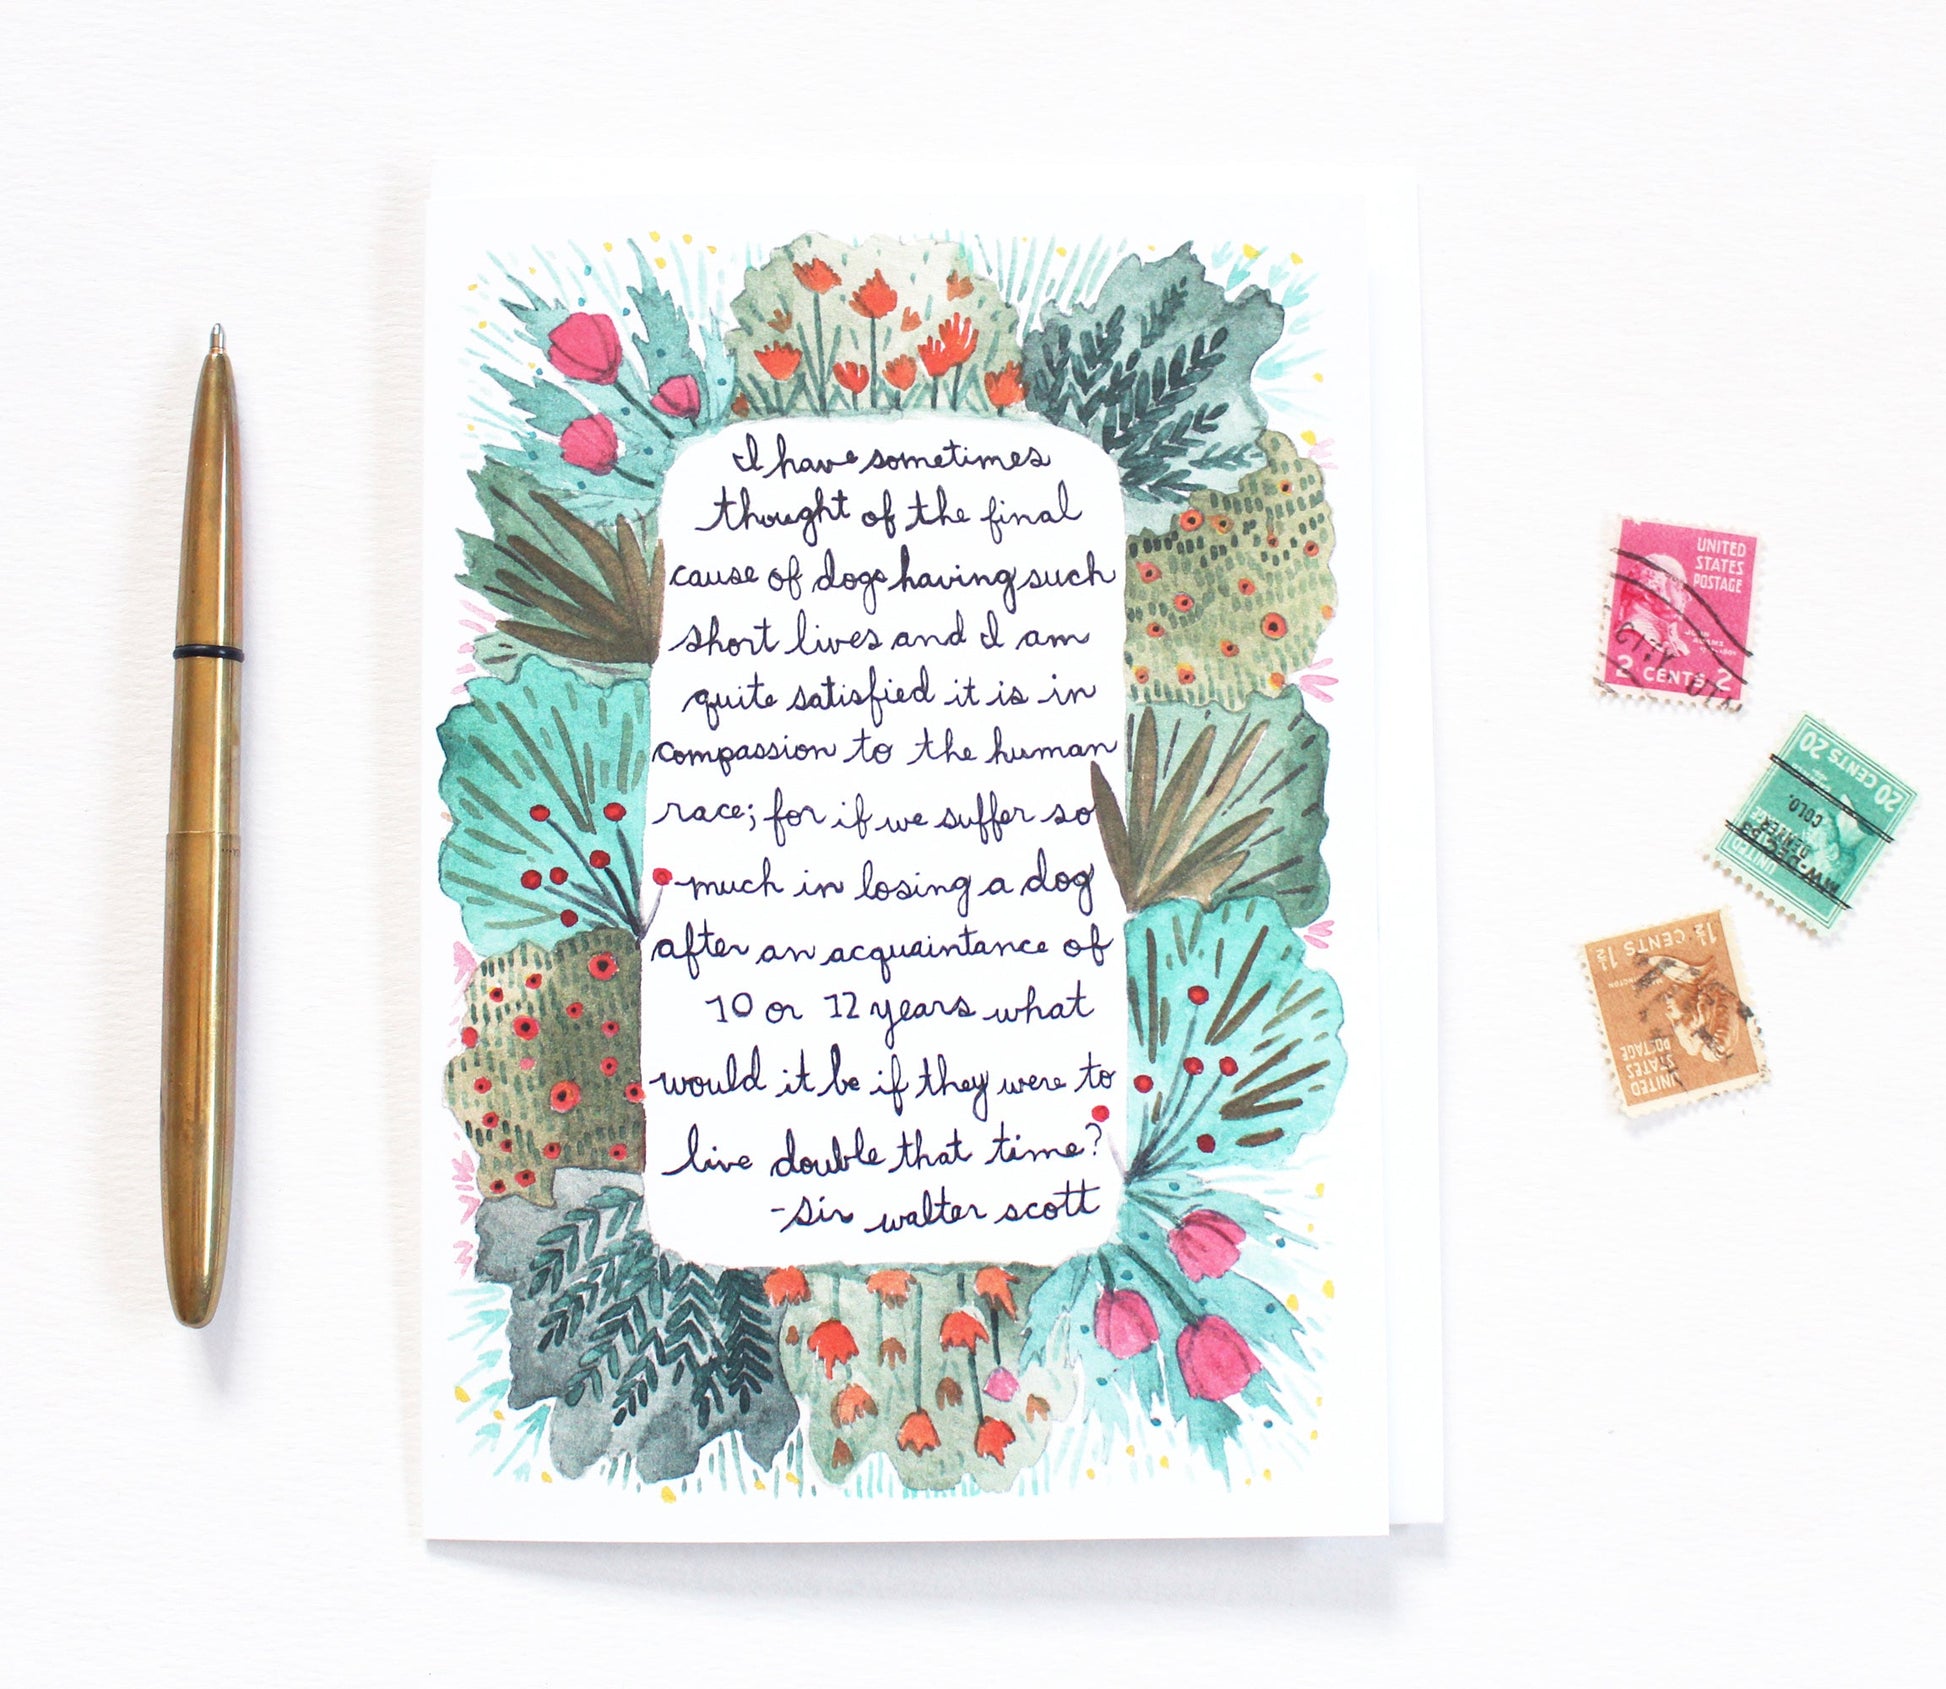 I have sometimes
thought of the final
cause of dogs having such
short lives and I am
quite satisfied it is in
compassion to the human
race; for if we suffer so
much in losing a dog
after an acquaintance of
10 or 12 years what
would it be if they were to
live double that time?
-sir walter scott
UNITED
STATES
POSTAGE
JOHN
ADAMS
2 CENTS 2
20 CENTS 20
COLO.
DENVER
1½ CENTS 1½
UNITED
STATES
POSTAGE